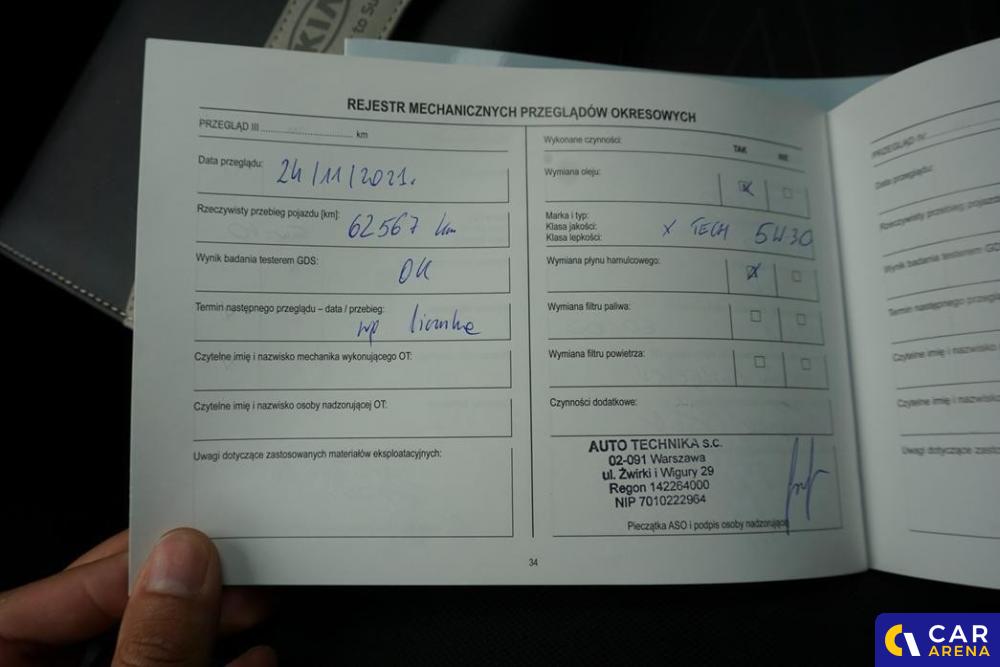 KIN
to Su
REJESTR MECHANICZNYCH PRZEGLĄDÓW OKRESOWYCH
PRZEGLĄD III ........................ km
Data przeglądu:
24/11/2021.
Rzeczywisty przebieg pojazdu [km]:
62567 km
Wynik badania testerem GDS:
OK
Termin następnego przeglądu – data / przebieg:
wp
Czytelne imię i nazwisko mechanika wykonującego OT:
Czytelne imię i nazwisko osoby nadzorującej OT:
Uwagi dotyczące zastosowanych materiałów eksploatacyjnych:
Wykonane czynności:
TAK NIE
Wymiana oleju:
Marka i typ:
Klasa jakości:
Klasa lepkości:
X TECH 5W30
Wymiana płynu hamulcowego:
Wymiana filtru paliwa:
Wymiana filtru powietrza:
Czynności dodatkowe:
AUTO TECHNIKA s.c.
02-091 Warszawa
ul. Żwirki i Wigury 29
Regon 142264000
NIP 7010222964
Pieczątka ASO i podpis osoby nadzorującej
34
PRZEGLĄD IV
Data przeglądu:
Rzeczywisty przebieg pojazdu
Wynik badania testerem GDS
Termin następnego przeglądu
Czytelne imię i nazwisko
Czytelne imię i nazwisko
Uwagi dotyczące zasto
CAR
ARENA